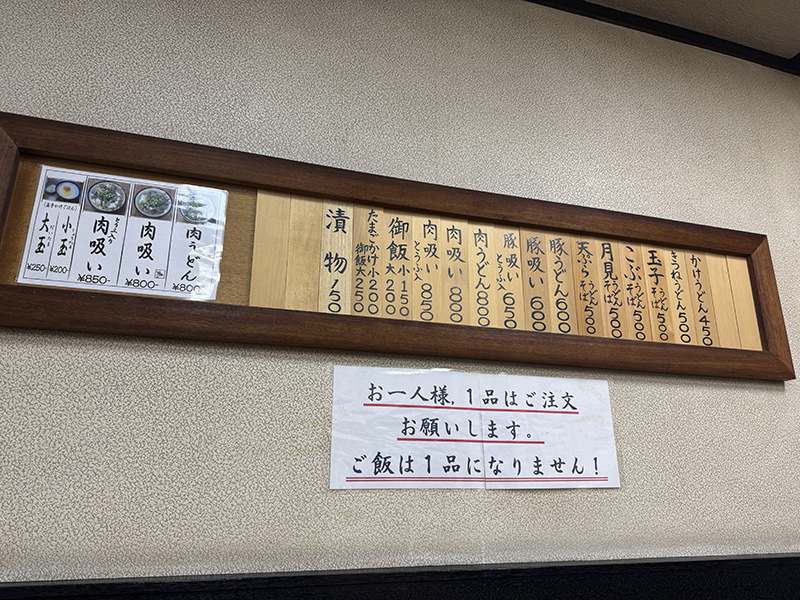 かけうどん 450
きつねうどん 500
玉子 うどん そば 500
こぶ うどん そば 500
月見 うどん そば 500
天ぷら うどん そば 500
豚うどん 600
豚吸い 600
豚吸い とうふ入 650
肉うどん 800
肉吸い 800
肉吸い とうふ入 850
御飯 小150 大200
たまごかけ御飯 小200 大250
漬物 150
肉うどん
¥800-
肉吸い
¥800-
とうふ入り
肉吸い
¥850-
(玉子かけごはん)
小玉
¥200-
大玉
¥250-
お一人様、1品はご注文
お願いします。
ご飯は1品になりません!